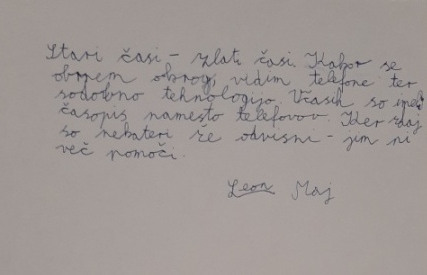 Stari časi - zlati časi. Kakor se
obrnem okrog, vidim telefone ter
sodobno tehnologijo. Včasih so imeli
časopis namesto telefonov. Ker zdaj
so nekateri že odvisni - jim ni
več pomoči.
Leon Maj